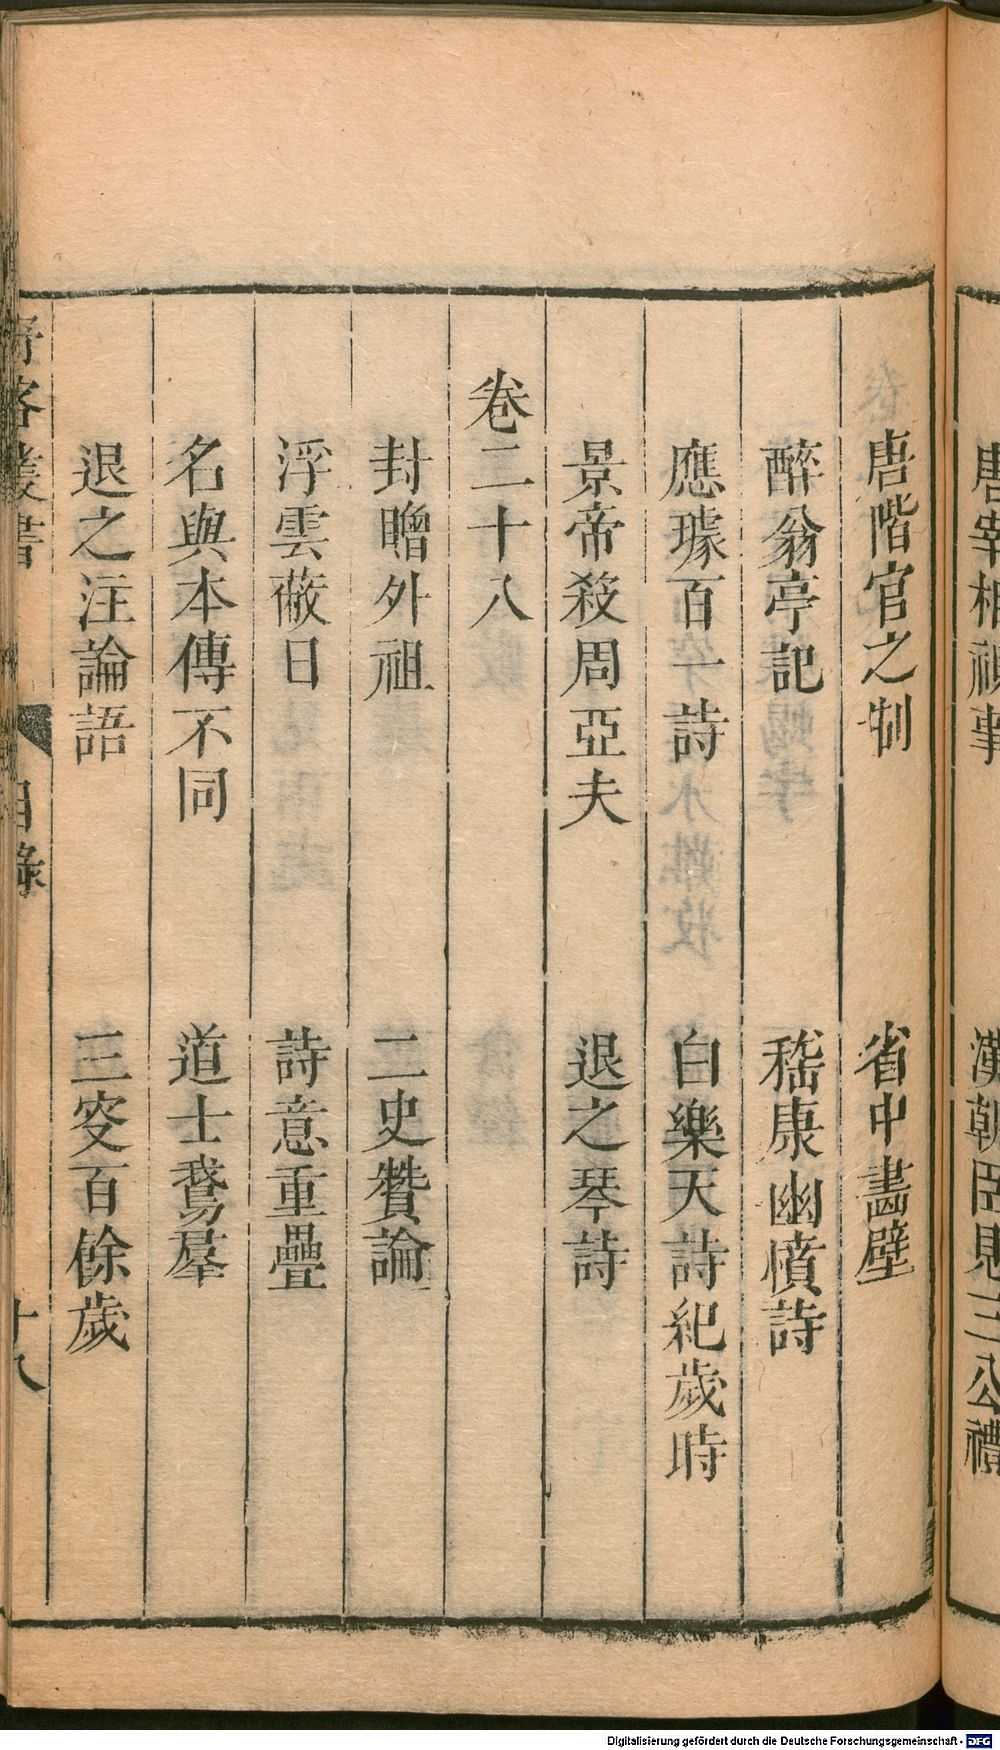 唐宰相視事　漢朝臣見三公禮
唐階官之制　省中畫壁
醉翁亭記　嵇康幽憤詩
應璩百一詩　白樂天詩紀歲時
景帝殺周亞夫　退之琴詩
卷二十八
封贈外祖　二史贊論
浮雲蔽日　詩意重疊
名與本傳不同　道士鵞羣
退之注論語　三安百餘歲
叢書　目錄　十八
Digitalisierung gefördert durch die Deutsche Forschungsgemeinschaft - DFG